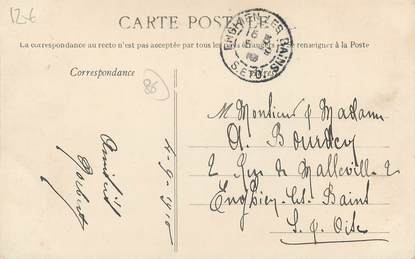 12€
CARTE POSTALE
La correspondance au recto n'est pas acceptée par tous les pays étrangers se renseigner à la Poste
Correspondance
ENGHIEN-LES-BAINS
S.ET O.
86
4-9-1910
Amitiés
Monsieur & Madame
A. Bourdey
2 Rue de Malleville 2
Enghien-les-Bains
S. & Oise